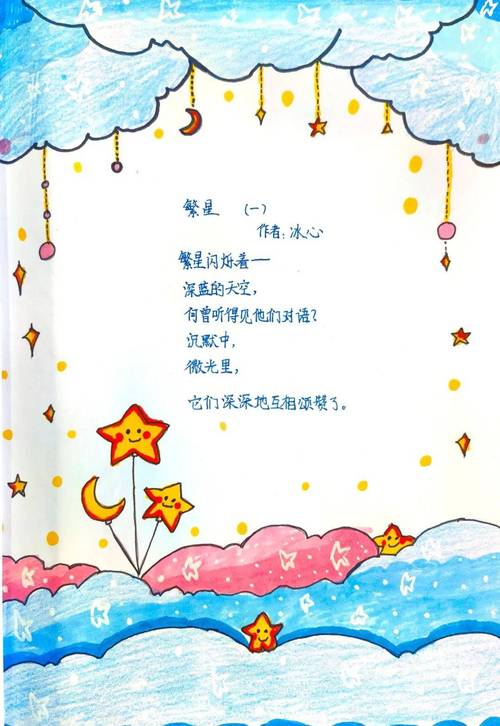 繁星 （一）
作者：冰心
繁星闪烁着一
深蓝的天空，
何曾听得见他们对语？
沉默中，
微光里，
它们深深地互相颂赞了。